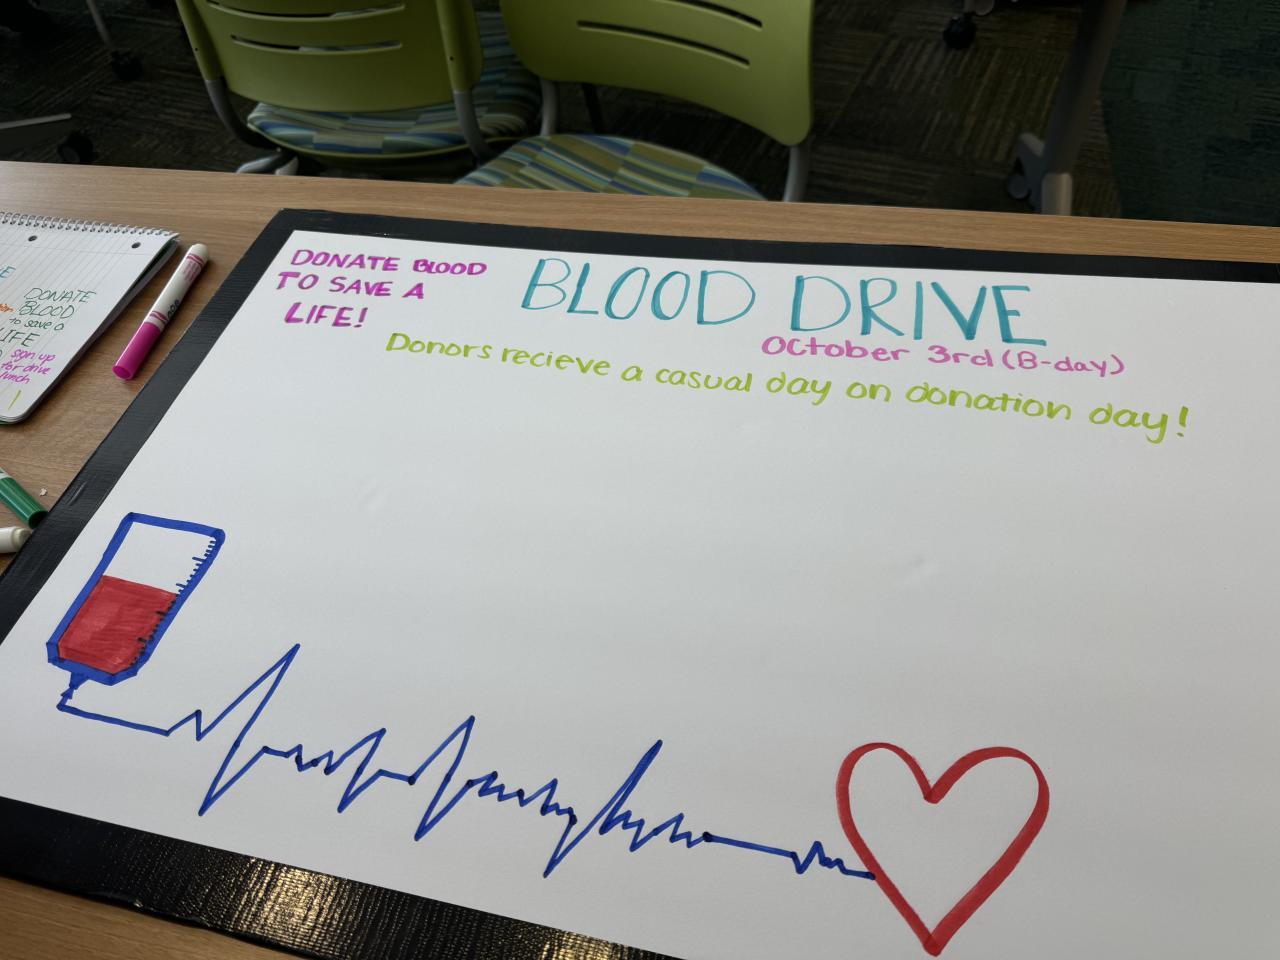 DONATE BLOOD
TO SAVE A
LIFE!
BLOOD DRIVE
October 3rd (B-day)
Donors recieve a casual day on donation day!
DONATE
BLOOD
to save a
LIFE
sign up
for drive
lunch